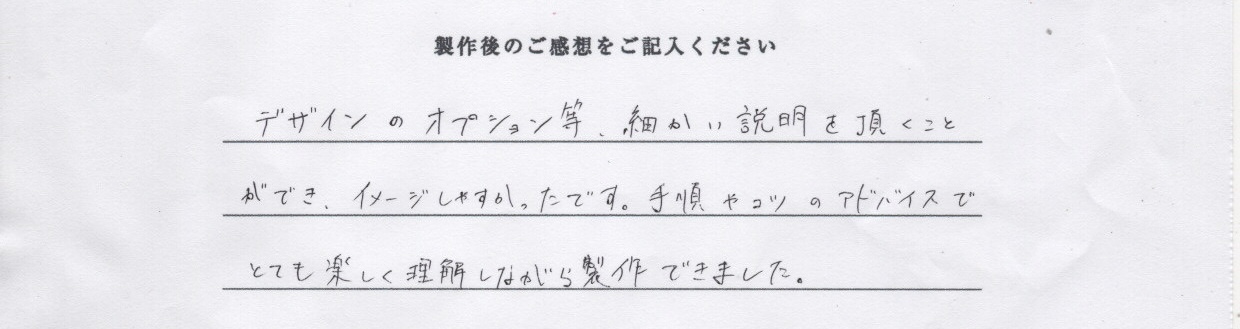 製作後のご感想をご記入ください
デザインのオプション等、細かい説明を頂くこと
ができ、イメージしやすかったです。手順やコツのアドバイスで
とても楽しく理解しながら製作できました。